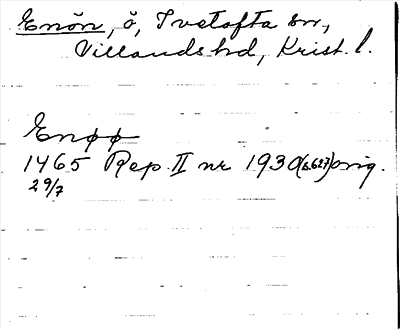 Enön, ö, Ivetofta sn,
Villands hd, Krist. l.
Enøø
1465 Rep. II nr 1930 (s. 627) orig.
29/7